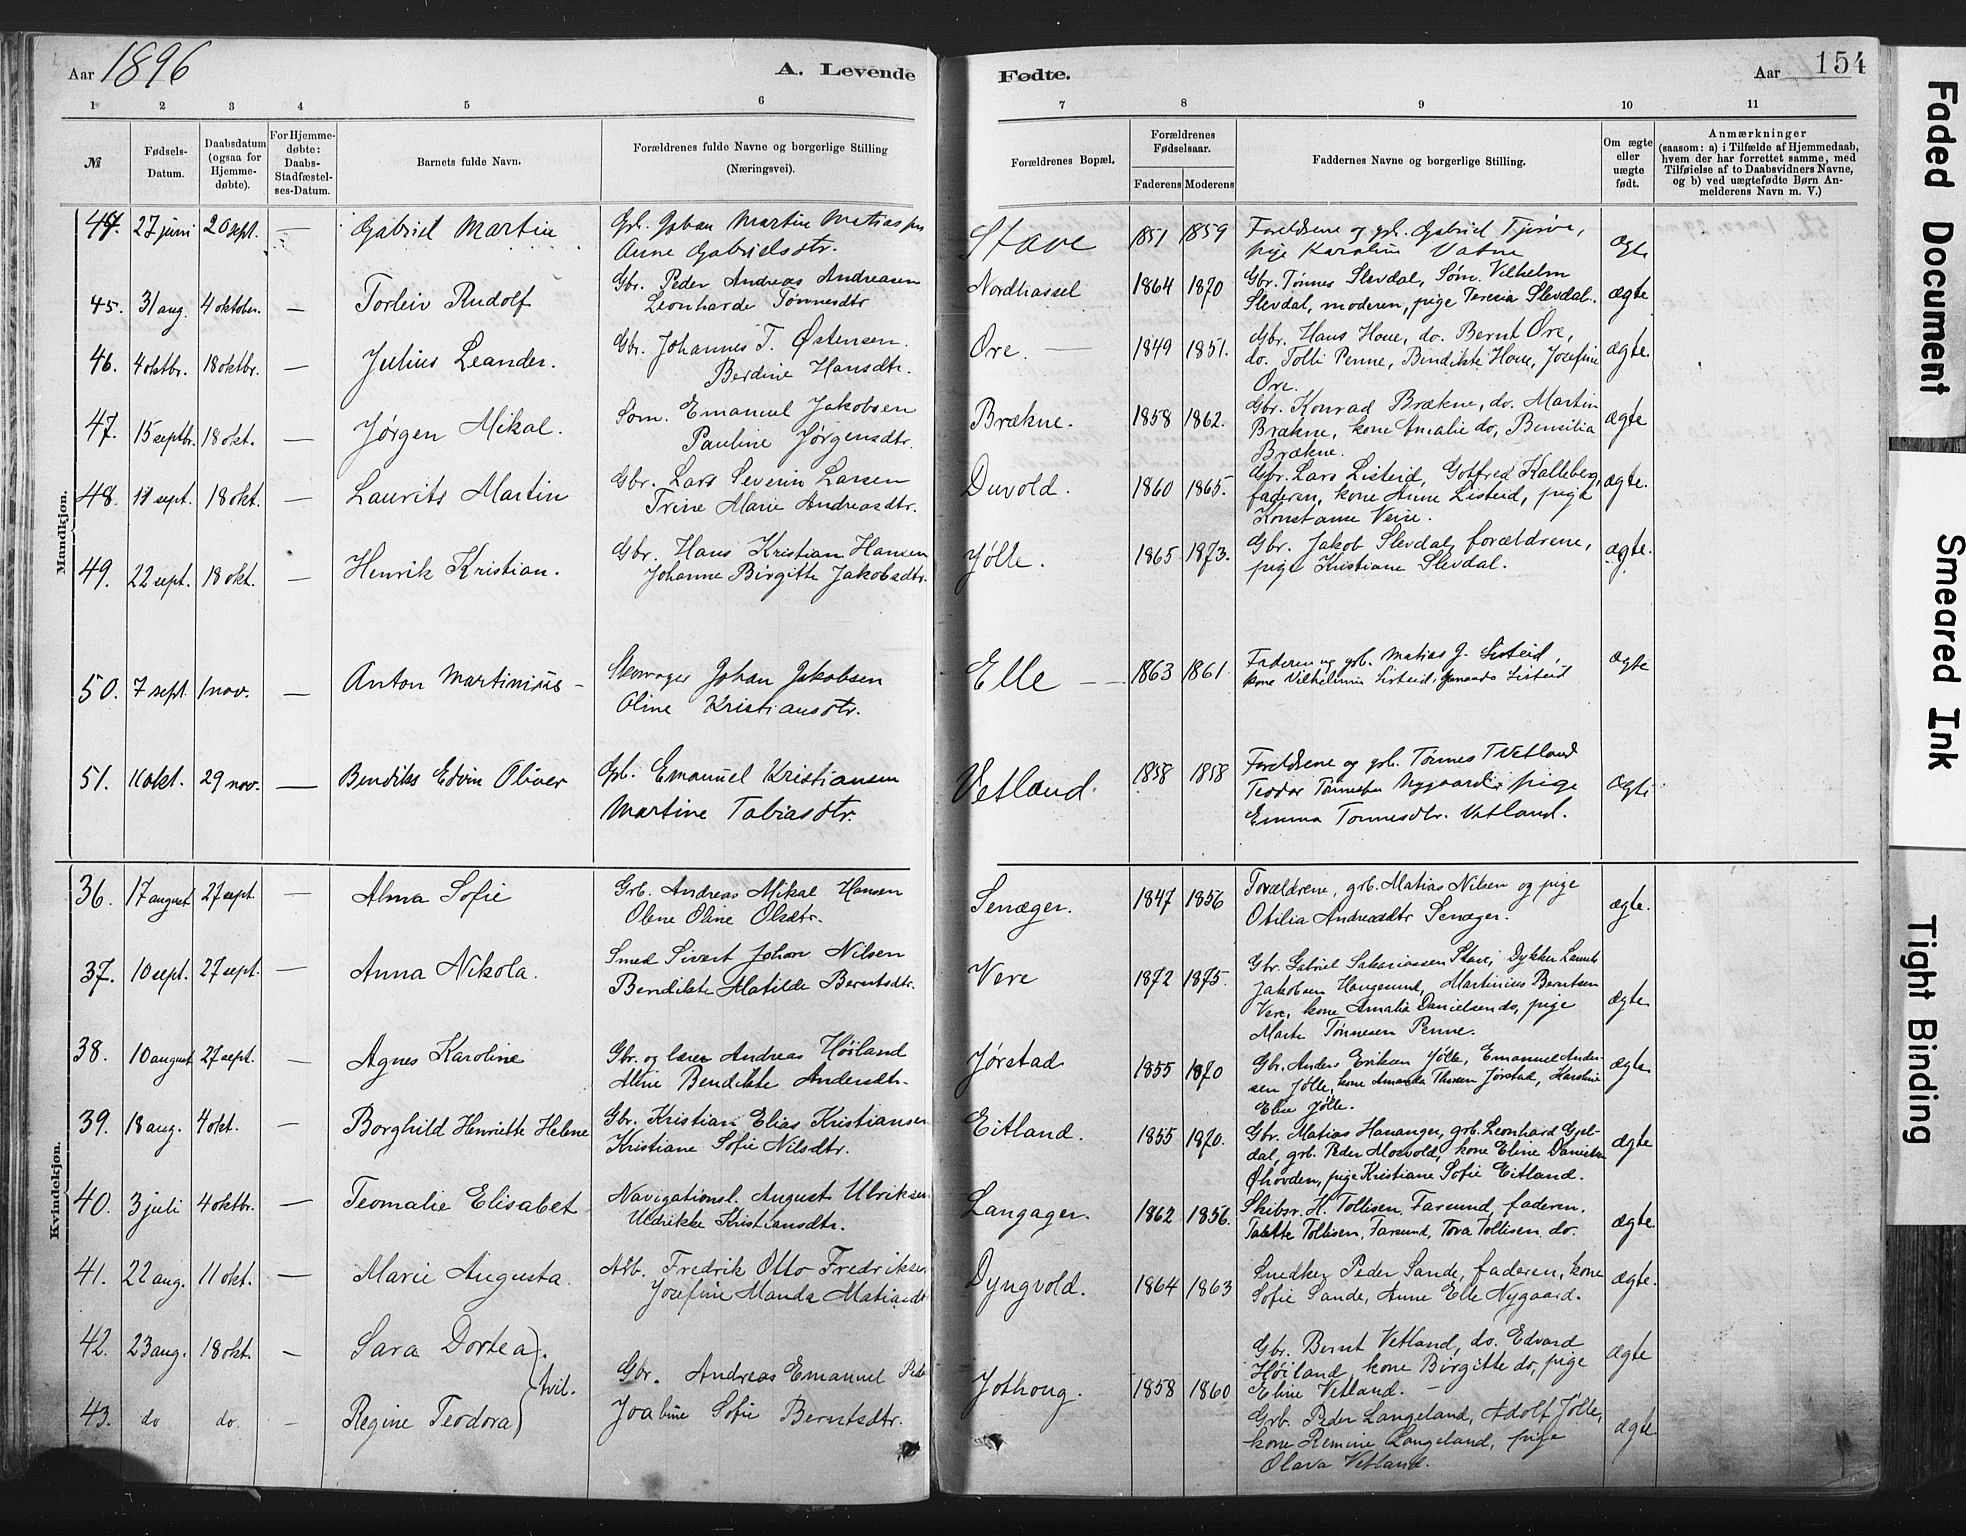 Aar 1896
A. Levende
Fødte.
Aar 154
1 2 3 4 5 6 7 8 9 10 11
№
Fødsels-
Datum.
Daabsdatum
(ogsaa for
Hjemme-
døbte).
For Hjemme-
døbte:
Daabs-
Stadfæstel-
ses-Datum.
Barnets fulde Navn.
Forældrenes fulde Navne og borgerlige Stilling
(Næringsvei).
Forældrenes Bopæl.
Forældrenes
Fødselsaar.
Faderens Moderens
Faddernes Navne og borgerlige Stilling.
Om ægte
eller
uægte
født.
Anmærkninger
(saasom: a) i Tilfælde af Hjemmedaab,
hvem der har forrettet samme, med
Tilføielse af to Daabsvidners Navne,
og b) ved uægtefødte Børn An-
melderens Navn m. V.)
Mandkjøn.
44. 27 juni 20 sept. — Gabriel Martin
Anne Gabrielsdtr.
Stave 1851 1859
Forældrene og grb. Gabriel Tjørve,
pige Karoline Vatne
ægte
45. 31 aug. 4 oktober. — Torleiv Rudolf
Gbr. Peder Andreas Andreasen
Leonharde Tønnesdtr
Nordhassel 1864 1870
Gbr. Tønnes Slevdal, Søm. Vilhelm
Slevdal, moderen, pige Teresia Slevdal.
ægte
46. 4 oktbr. 18 oktbr. — Julius Leander.
Gbr. Johannes T. Østensen.
Berdine Hansdtr.
Øre. — 1849 1851.
Gbr. Hans Houe, do. Bernt Øre,
do. Tolli Penne, Bendikte Houe, Josefine
Øre.
ægte.
47. 15 septbr. 18 okt. — Jørgen Mikal.
Søm. Emanuel Jakobsen
Pauline Jørgensdtr.
Brækne. 1858 1862.
Gbr. Konrad Brækne, do. Martin
Brækne, kone Amalie do, Bensilia
Brækne.
ægte
48. 11 sept. 18 okt. — Laurits Martin
Gbr. Lars Severin Larsen
Trine Marie Andreasdtr.
Duvold. 1860 1865.
Gbr. Lars Listeid, Gotfred Kalleberg,
faderen, kone Anne Listeid, pige
Konstanse Veise.
ægte.
49. 22 sept. 18 okt. — Henrik Kristian.
Gbr. Hans Kristian Hansen
Johanne Birgitte Jakobsdtr.
Jølle. 1865 1873.
Gbr. Jakob Slevdal, forældrene,
pige Kristiane Slevdal.
ægte.
50. 7 sept 1 nov. — Anton Martinius —
Johan Jakobsen
Oline Kristiansdtr.
Elle — — 1863 1861
Faderen og grb. Matias J. Listeid,
kone Vilhelmine Listeid, Listeid
ægte
51. 11 okt. 29 nov. — Bendiks Edvin Oliver
Grb. Emanuel Kristiansen
Martine Tobiasdtr.
Vetland. 1858 1858
Forældrene og grb. Tønnes T Vetland
Teodor Tønnesen Nygaard, pige
Emma Tønnesdtr. Vetland.
ægte
Kvindekjøn.
36. 17 august 27 sept. — Alma Sofie
Grb. Andreas Mikal Hansen
Olene Oline Olsdtr.
Senæger. 1847 1856
Forældrene, grb. Matias Nilsen og pige
Otilia Andreasdtr Senæger.
ægte.
37. 10 sept. 27 sept. — Anna Nikola.
Smed Sivert Johan Nilsen
Bendikte Matilde Berntsdtr.
Vere 1872 1875.
Gbr. Gabriel Sakariassen Stave, Dykker Laurits
Jakobsen Haugesund, Martinius Berntsen
Vere, kone Amalia Danielsen do, pige
Marte Tønnesen Penne.
ægte
38. 10 august 27 sept. — Agnes Karoline
Gbr. og lærer Andreas Høiland
Aline Bendikte Andersdtr.
Jørstad 1855 1870
Gbr. Anders Eriksen Jølle, Emanuel Ander-
sen Jølle, kone Amanda Thorsen Jørstad, Karoline
Elise Jølle.
ægte
39. 18 aug. 4 okt. — Borghild Henriette Helene
Gbr. Kristian Elias Kristiansen
Kristiane Sofie Nilsdtr.
Eitland. 1855 1870.
Gbr. Matias Hananger, grb. Leonhard Gjel-
dal, grb. Peder Mosvold, kone Eline Danielsen
Øhovden, pige Kristiane Sofie Eitland.
ægte
40. 3 juli 4 oktbr. — Teomalie Elisabet
Navigationsl. August Ulriksen
Uldrikke Kristiansdtr.
Langager. 1862 1856.
Skibsr. H. Tollisen, Farsund, faderen.
Talette Tollisen, Farsund, Tora Tollisen do.
ægte.
41. 22 aug. 11 okt. — Marie Augusta.
Arb. Fredrik Otto Fredriksen
Josefine Manda Matiasdtr
Dyngvold. 1864 1863
Snedker Peder Sande, faderen, kone
Sofie Sande, Anne Elle Nygaard.
ægte.
42. 23 aug. 18 okt. — Sara Dortea
Gbr. Bernt Vetland, do. Edvard
Høiland, kone Birgitte do, pige
Eline Vetland. —
ægte
tvil.
Gbr. Andreas Emanuel
Joakine Sofie Berntsdtr.
1858 1860
43. do do. — Regine Teodora
Grb. Peder Langeland, Adolf Jølle,
kone Remine Langeland, pige
Olava Vetland.
ægte.
Faded Document
Smeared Ink
Tight Binding